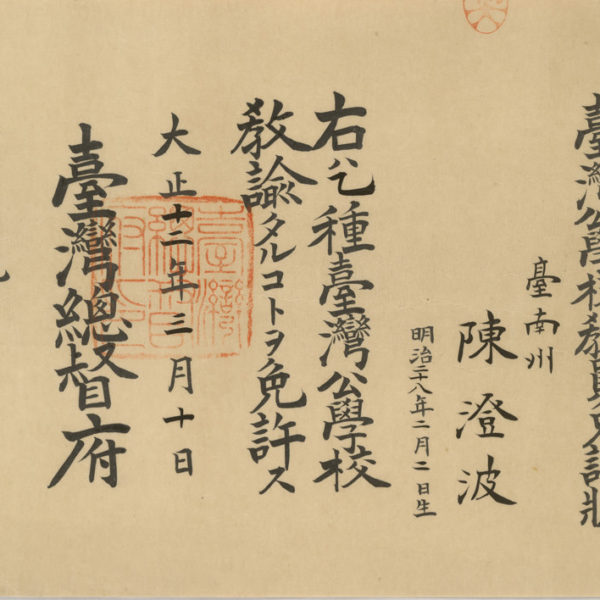 臺灣公學校教員免許狀
臺南州
陳澄波
明治二八年二月二日生
右ハ乙種臺灣公學校
教諭タルコトヲ免許ス
大正十二年三月十日
臺灣總督府